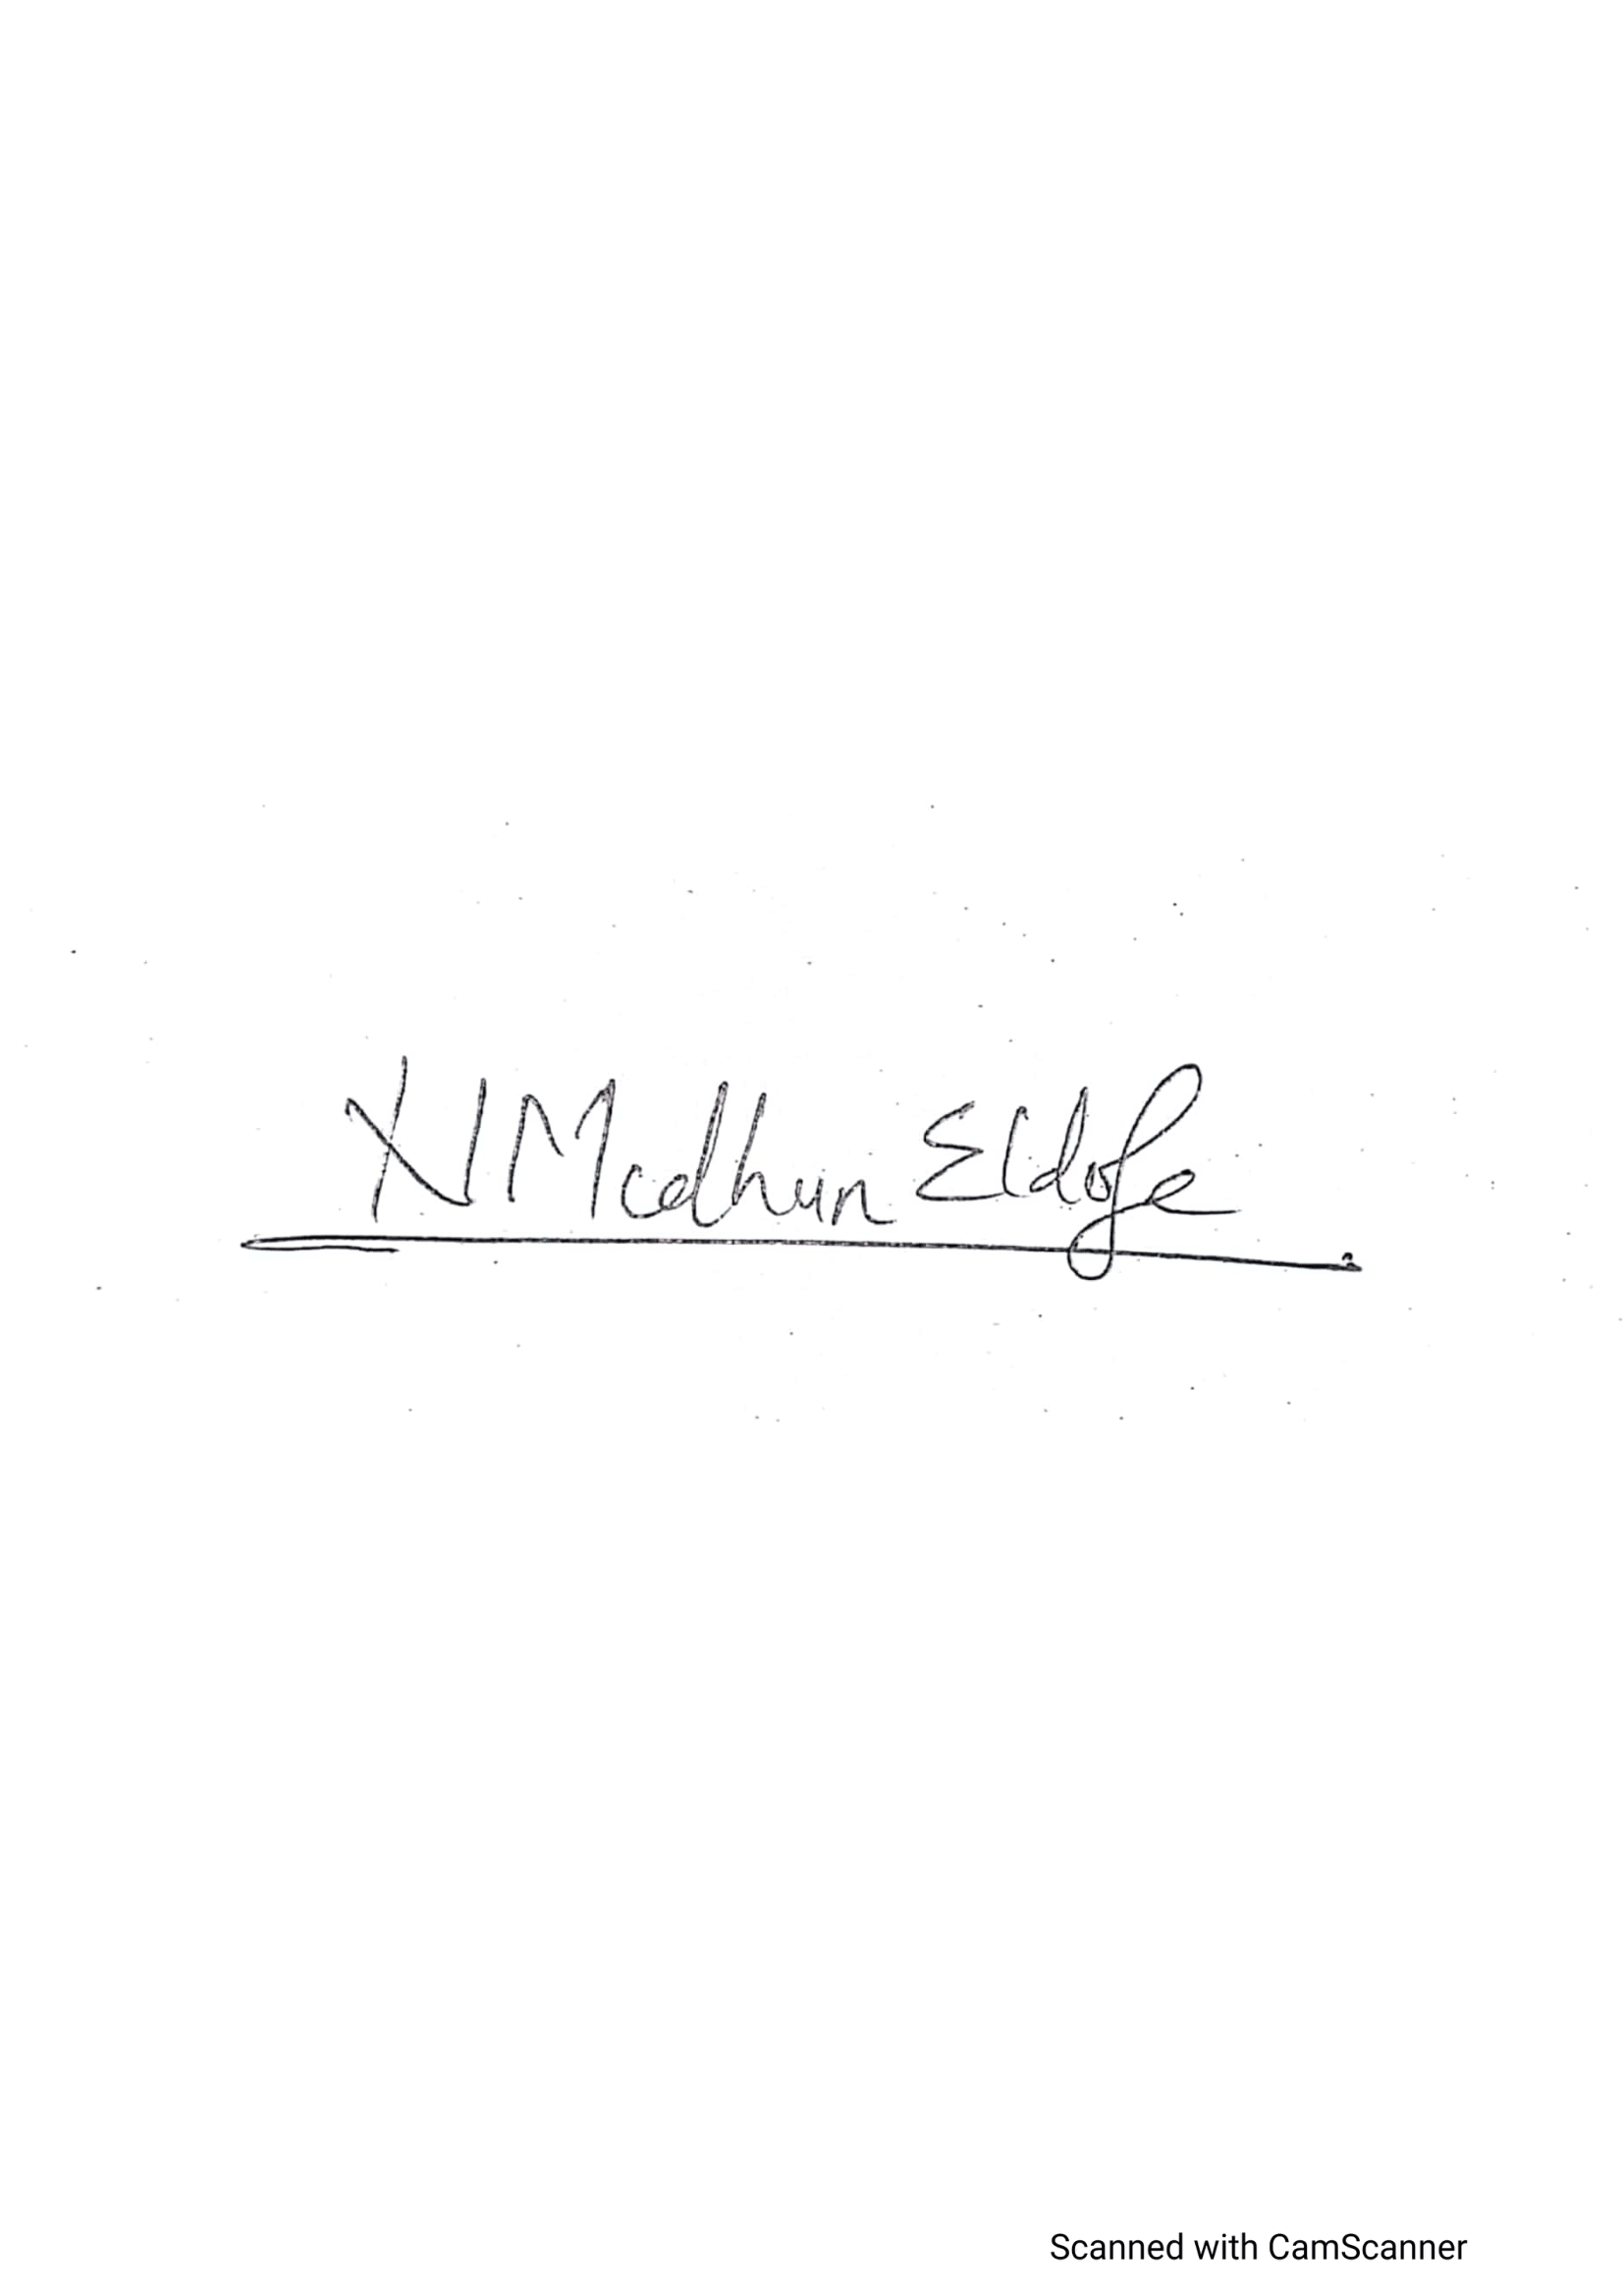 N Madhun Eldofe
Scanned with CamScanner